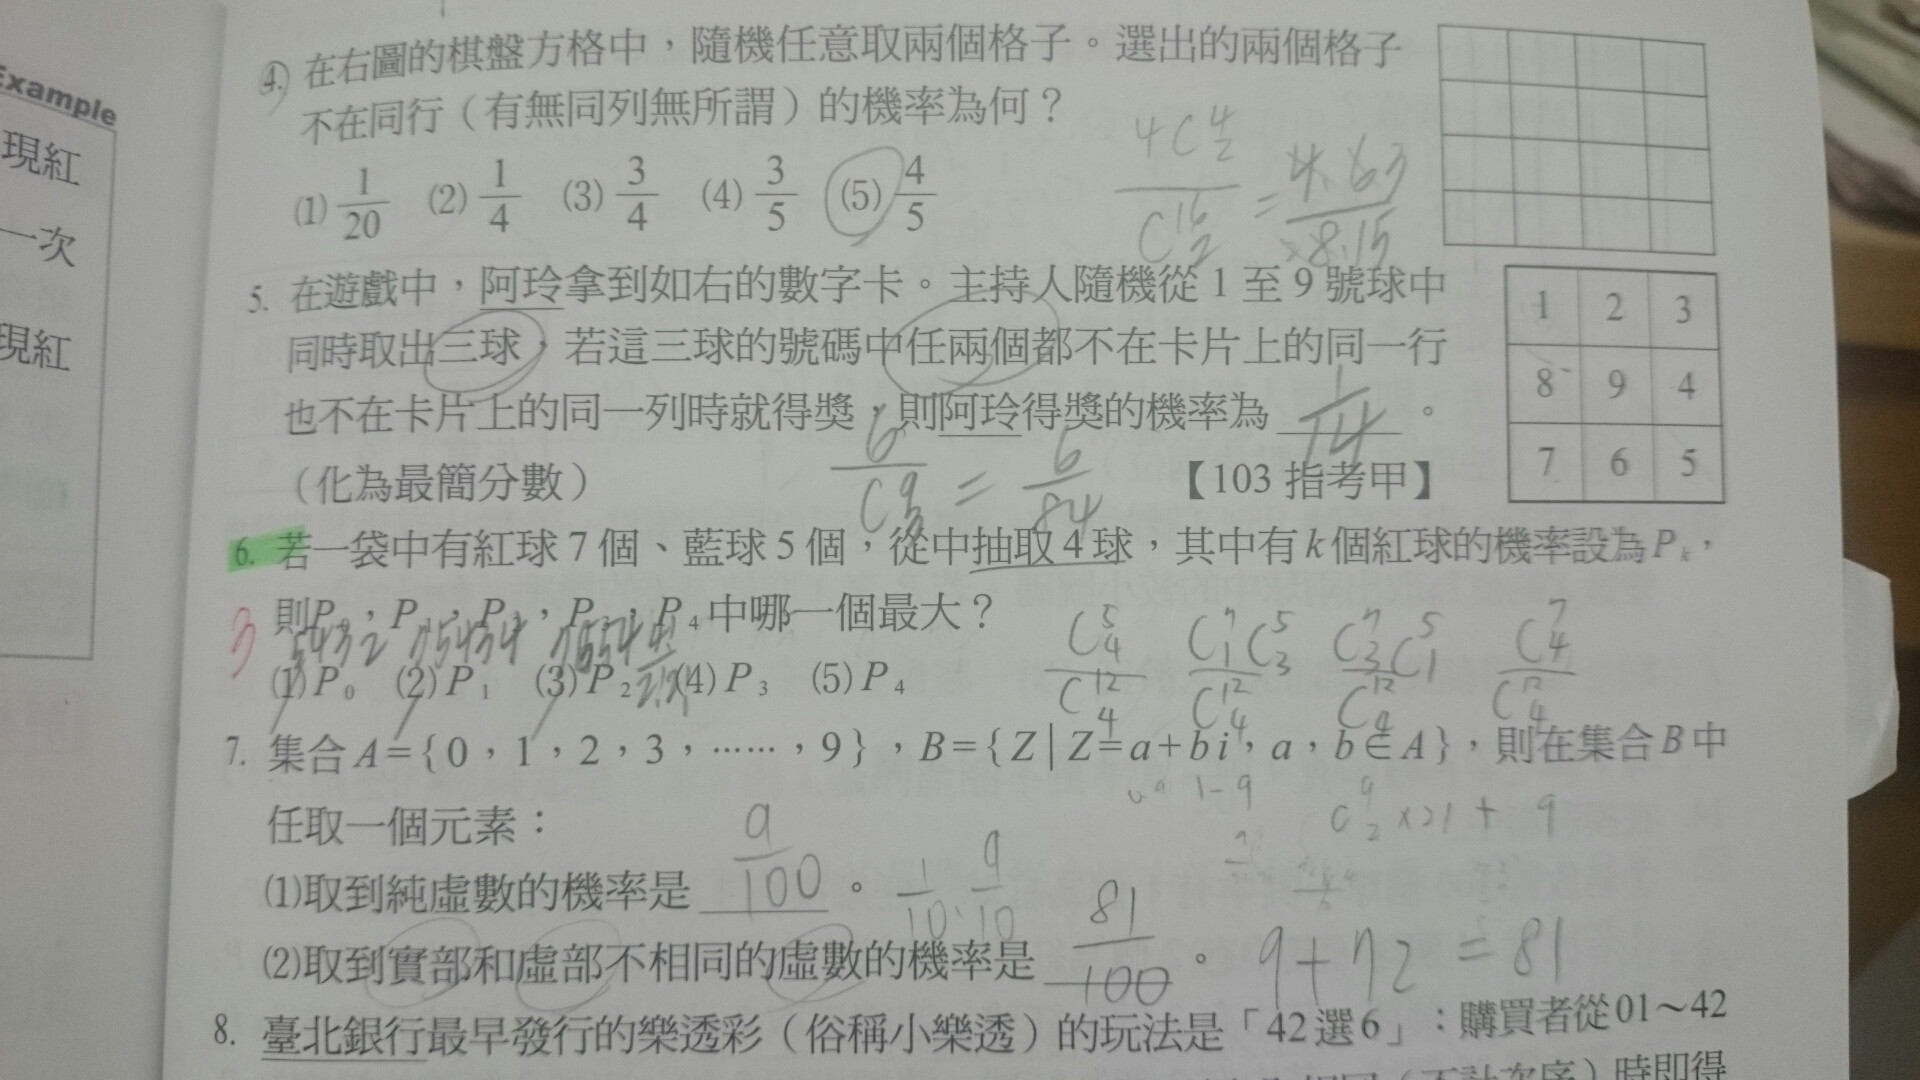 Example
現紅
一次
現紅
4. 在右圖的棋盤方格中，隨機任意取兩個格子。選出的兩個格子
不在同行（有無同列無所謂）的機率為何？
(1) 1/20 (2) 1/4 (3) 3/4 (4) 3/5 (5) 4/5
4C⁴₂ / C¹⁶₂ = 4·6 3 / 8·15
5. 在遊戲中，阿玲拿到如右的數字卡。主持人隨機從 1 至 9 號球中
同時取出三球，若這三球的號碼中任兩個都不在卡片上的同一行
也不在卡片上的同一列時就得獎，則阿玲得獎的機率為 1/14 。
（化為最簡分數） 6/C⁹₃ = 6/84 【103 指考甲】
1 2 3
8 9 4
7 6 5
6. 若一袋中有紅球 7 個、藍球 5 個，從中抽取 4 球，其中有 k 個紅球的機率設為 Pₖ，
3
則 P₀，P₁，P₂，P₃，P₄ 中哪一個最大？
(1) P₀ (2) P₁ (3) P₂ (4) P₃ (5) P₄
C⁵₄/C¹²₄ C⁷₁C⁵₃/C¹²₄ C⁷₃C⁵₁/C¹²₄ C⁷₄/C¹²₄
7. 集合 A={0，1，2，3，……，9}，B={Z|Z=a+bi，a，b∈A}，則在集合 B 中
1-9 C⁹₂×21+9
任取一個元素：
(1)取到純虛數的機率是 9/100 。 1/10 · 9/10
(2)取到實部和虛部不相同的虛數的機率是 81/100 。 9+72=81
8. 臺北銀行最早發行的樂透彩（俗稱小樂透）的玩法是「42 選 6」：購買者從 01～42
（不計次序）時即得